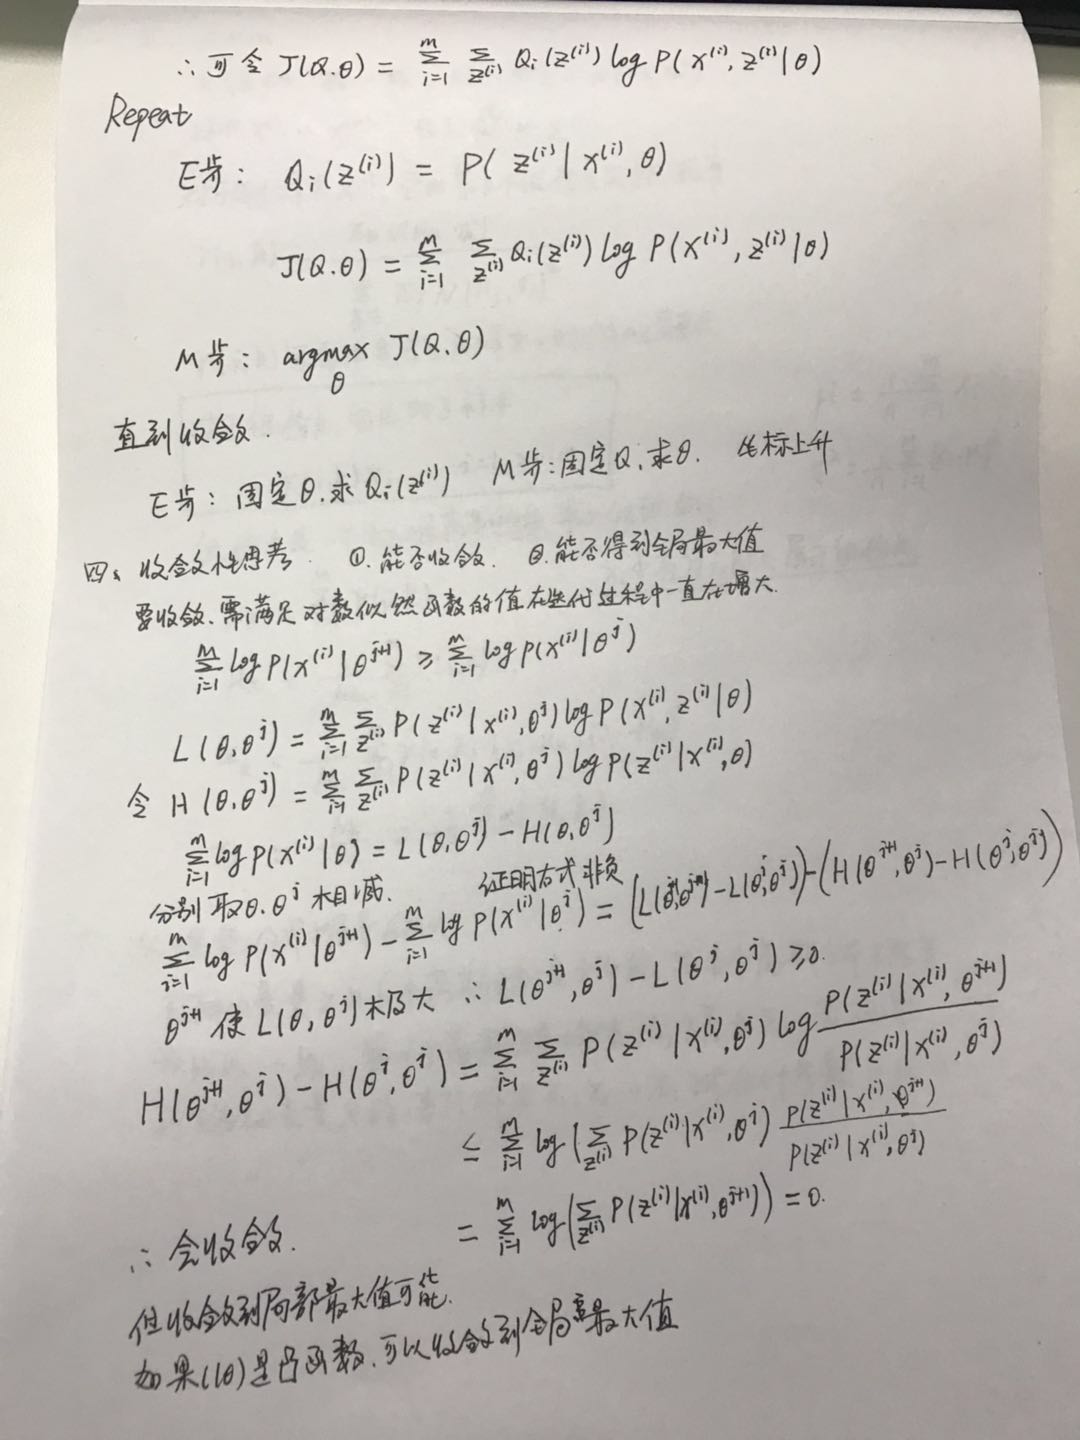 ∴ 可令 J(Q.θ) = Σ_{i=1}^{m} Σ_{z^{(i)}} Q_i(z^{(i)}) log P(x^{(i)}, z^{(i)}|θ)
Repeat
E步: Q_i(z^{(i)}) = P(z^{(i)}|x^{(i)}, θ)
J(Q.θ) = Σ_{i=1}^{m} Σ_{z^{(i)}} Q_i(z^{(i)}) log P(x^{(i)}, z^{(i)}|θ)
M步: argmax_θ J(Q.θ)
直到收敛.
E步: 固定θ.求Q_i(z^{(i)}) M步:固定Q,求θ. 坐标上升
四、收敛性思考. ①.能否收敛. ②.能否得到全局最大值
要收敛.需满足对数似然函数的值在迭代过程中一直在增大.
Σ_{i=1}^{m} log P(x^{(i)}|θ^{j+1}) ≥ Σ_{i=1}^{m} log P(x^{(i)}|θ^j)
L(θ,θ^j) = Σ_{i=1}^{m} Σ_{z^{(i)}} P(z^{(i)}|x^{(i)},θ^j) log P(x^{(i)}, z^{(i)}|θ)
令 H(θ.θ^j) = Σ_{i=1}^{m} Σ_{z^{(i)}} P(z^{(i)}|x^{(i)},θ^j) log P(z^{(i)}|x^{(i)},θ)
Σ_{i=1}^{m} log P(x^{(i)}|θ) = L(θ,θ^j) - H(θ,θ^j)
分别取θ.θ^j 相减. 证明右式非负
Σ_{i=1}^{m} log P(x^{(i)}|θ^{j+1}) - Σ_{i=1}^{m} log P(x^{(i)}|θ^j) = (L(θ^j,θ^{j+1}) - L(θ^j,θ^j)) - (H(θ^{j+1},θ^j) - H(θ^j,θ^j))
θ^{j+1} 使 L(θ,θ^j) 极大 ∴ L(θ^{j+1},θ^j) - L(θ^j,θ^j) ≥ 0.
H(θ^{j+1},θ^j) - H(θ^j,θ^j) = Σ_{i=1}^{m} Σ_{z^{(i)}} P(z^{(i)}|x^{(i)},θ^j) log P(z^{(i)}|x^{(i)}, θ^{j+1}) / P(z^{(i)}|x^{(i)}, θ^j)
≤ Σ_{i=1}^{m} log(Σ_{z^{(i)}} P(z^{(i)}|x^{(i)},θ^j) P(z^{(i)}|x^{(i)}, θ^{j+1}) / P(z^{(i)}|x^{(i)},θ^j)
= Σ_{i=1}^{m} log(Σ_{z^{(i)}} P(z^{(i)}|x^{(i)},θ^{j+1})) = 0.
∴ 会收敛.
但收敛到局部最大值可能.
如果l(θ)是凸函数.可以收敛到全局最大值